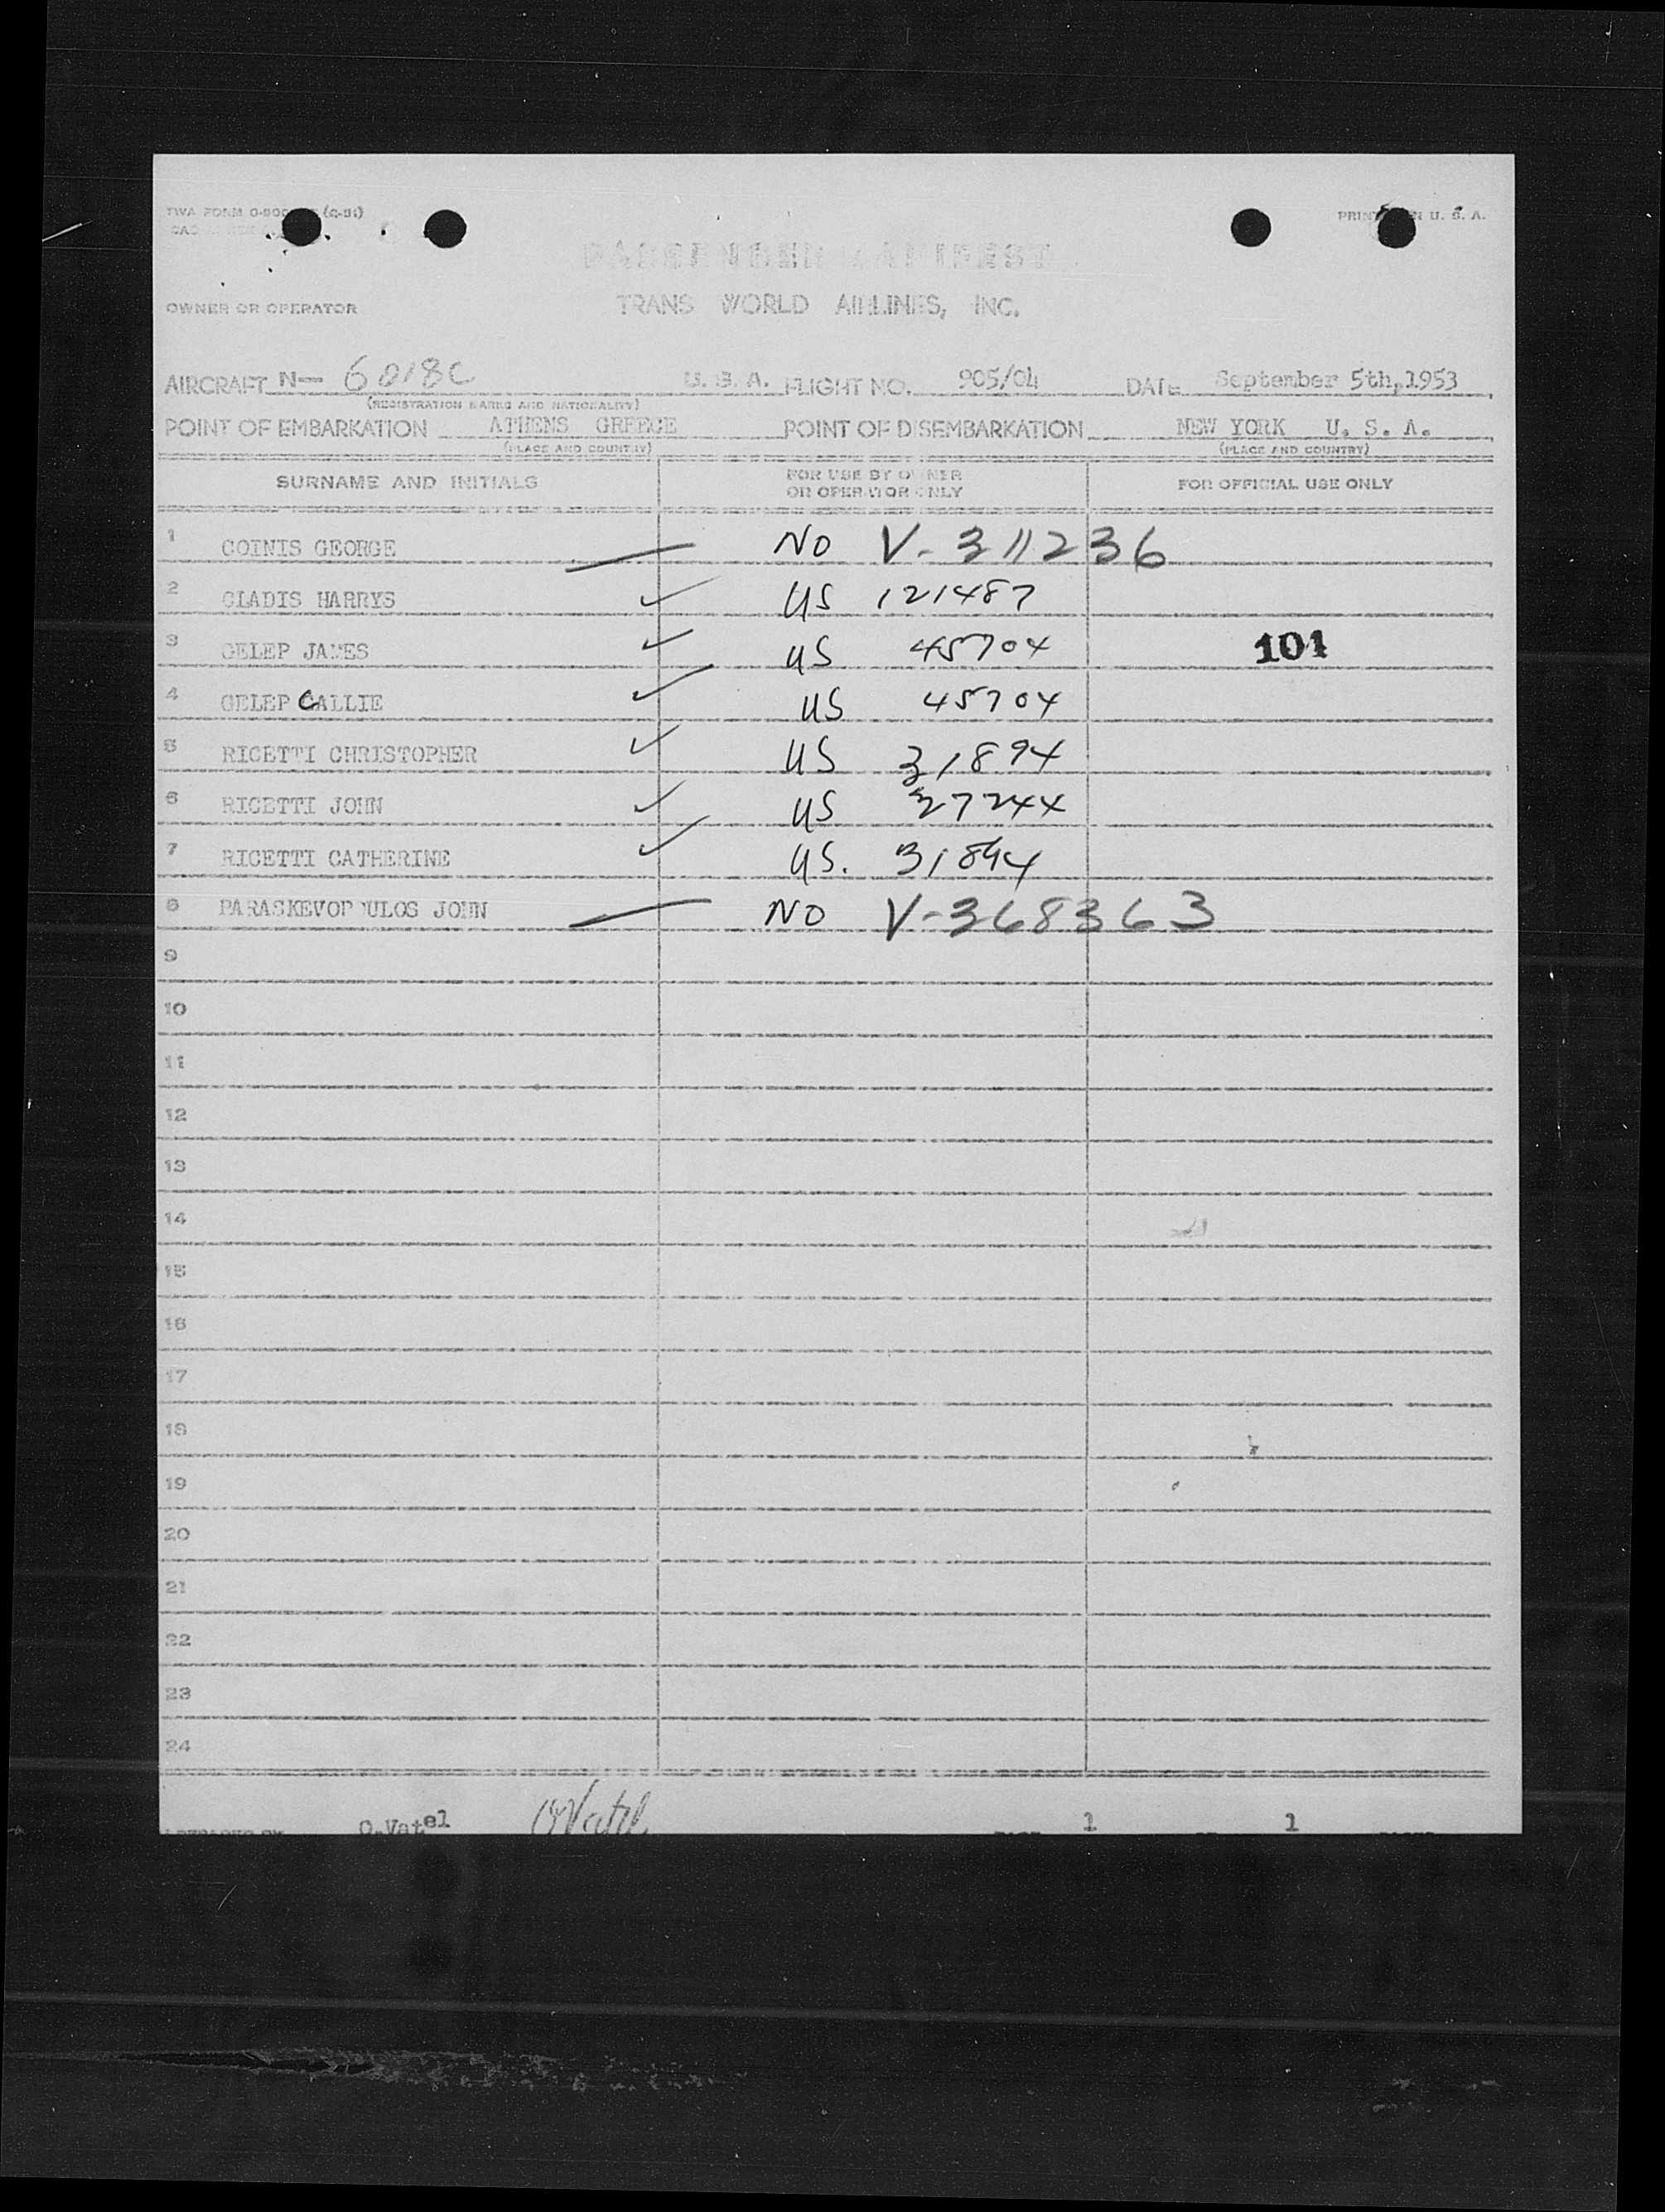 TWA FORM O-900 (C-51)
PRINTED IN U. S. A.
PASSENGER MANIFEST
OWNER OR OPERATOR TRANS WORLD AIRLINES, INC.
AIRCRAFT N— 6018C U. S. A. FLIGHT NO. 905/04 DATE September 5th,1953
(REGISTRATION MARKS AND NATIONALITY)
POINT OF EMBARKATION ATHENS GREECE POINT OF DISEMBARKATION NEW YORK U. S. A.
(PLACE AND COUNTRY) (PLACE AND COUNTRY)
SURNAME AND INITIALS FOR USE BY OWNER OR OPERATOR ONLY FOR OFFICIAL USE ONLY
1 COINIS GEORGE NO V-311236
2 GLADIS HARRYS ✓ US 121487
3 GELEP JAMES ✓ US 45704 101
4 GELEP CALLIE ✓ US 45704
5 RIGETTI CHRISTOPHER ✓ US 31894
6 RIGETTI JOHN ✓ US 27244
7 RIGETTI CATHERINE ✓ US. 31894
8 PARASKEVOPOULOS JOHN NO V-368363
9
10
11
12
13
14
15
16
17
18
19
20
21
22
23
24
O.Vatel OVatel 1 1